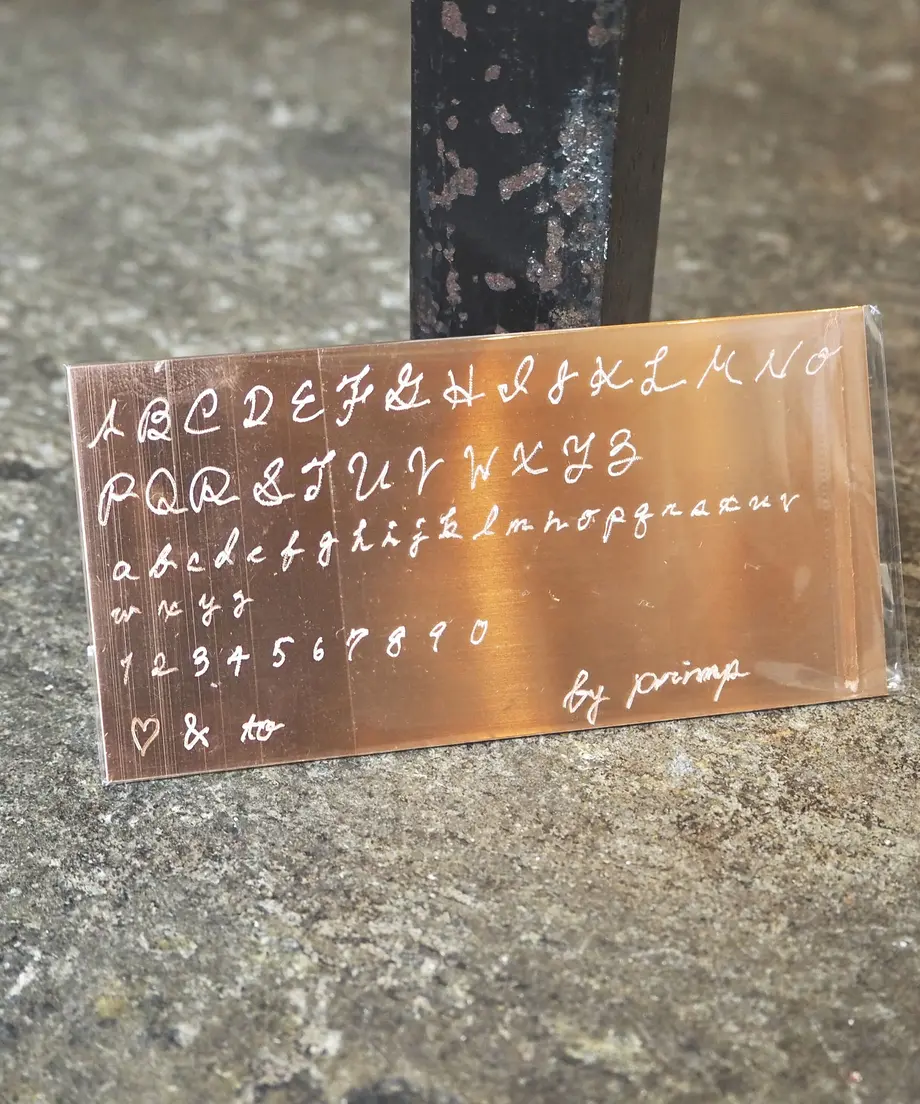 A B C D E F G H I J K L M N O
P Q R S T U V W X Y Z
a b c d e f g h i j k l m n o p q r s t u v
w x y z
1 2 3 4 5 6 7 8 9 0
♡ & to
by primp